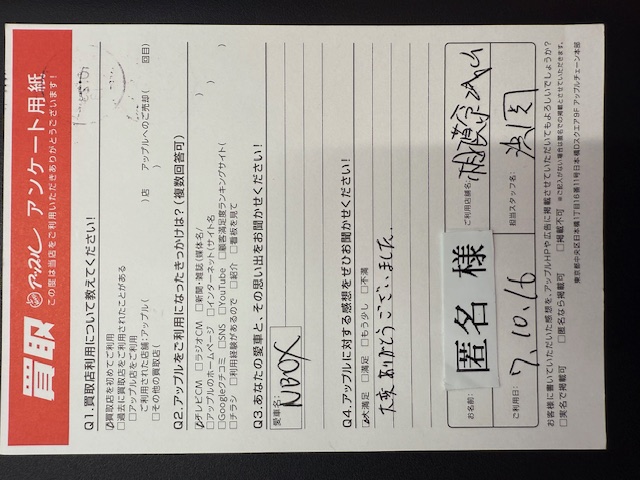 買取 アップル アンケート用紙
この度は当店をご利用いただきありがとうございます!
Q1.買取店利用について教えてください!
☑買取を初めてご利用
□過去に買取店をご利用されたことがある
□アップル店をご利用
ご利用された店舗:アップル( )店 アップルへのご売却( 回目)
□その他の買取店( )
Q2.アップルをご利用になったきっかけは?(複数回答可)
☑テレビCM □ラジオCM □新聞・雑誌(媒体名/ )
□アップルのホームページ □インターネット(サイト名 )
□Googleクチコミ □SNS □YouTube □顧客満足度ランキングサイト( )
□チラシ □利用経験があるので □紹介 □看板を見て
Q3.あなたの愛車と、その思い出をお聞かせください!
愛車名: NBOX
Q4.アップルに対する感想をぜひお聞かせください!
☑大満足 □満足 □もう少し □不満
大変ありがとうございました。
お名前: 匿名 様
ご利用店舗名:
ご利用日: 7.10.16
担当スタッフ名:
お客様に書いていただいた感想を、アップルHPや広告に掲載させていただいてもよろしいでしょうか?
□実名で掲載可 □匿名なら掲載可 □掲載不可 ※ご記入がない場合は匿名での掲載とさせていただきます。
東京都中央区日本橋1丁目16番11号日本橋Dスクエア9F アップルチェーン本部